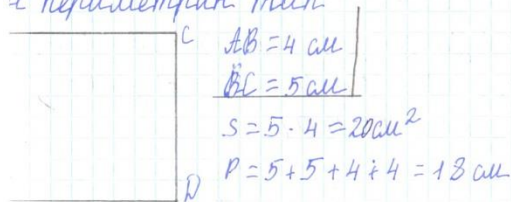 периметрин тап
C
AB = 4 см
BC = 5 см
S = 5 · 4 = 20 см²
P = 5 + 5 + 4 + 4 = 18 см
D